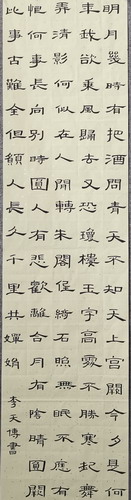 明月幾時有把酒問青天不知天上宮闕今夕是何
年我欲乘風歸去又恐瓊樓玉宇高處不勝寒起舞
弄清影何似在人間轉朱閣低綺戶照無眠不應有
恨何事長向別時圓人有悲歡離合月有陰晴圓闕
此事古難全但願人長久千里共嬋娟
李天博書